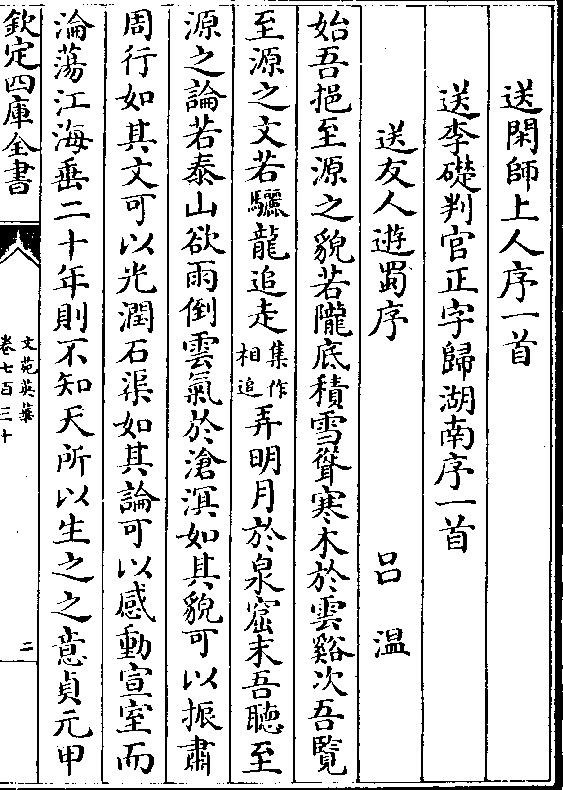 送閑師上人序一首
送李礎判官正字歸湖南序一首
送友人遊蜀序 呂溫
始吾挹至源之貌若隴底積雪聳寒木於雲谿次吾覽
至源之文若驪龍追走集作相追弄明月於泉窟末吾聽至
源之論若泰山欲雨倒雲氣於滄溟如其貌可以振肅
周行如其文可以光潤石渠如其論可以感動宣室而
淪蕩江海垂二十年則不知天所以生之之意貞元甲
欽定四庫全書
文苑英華
卷七百三十
二